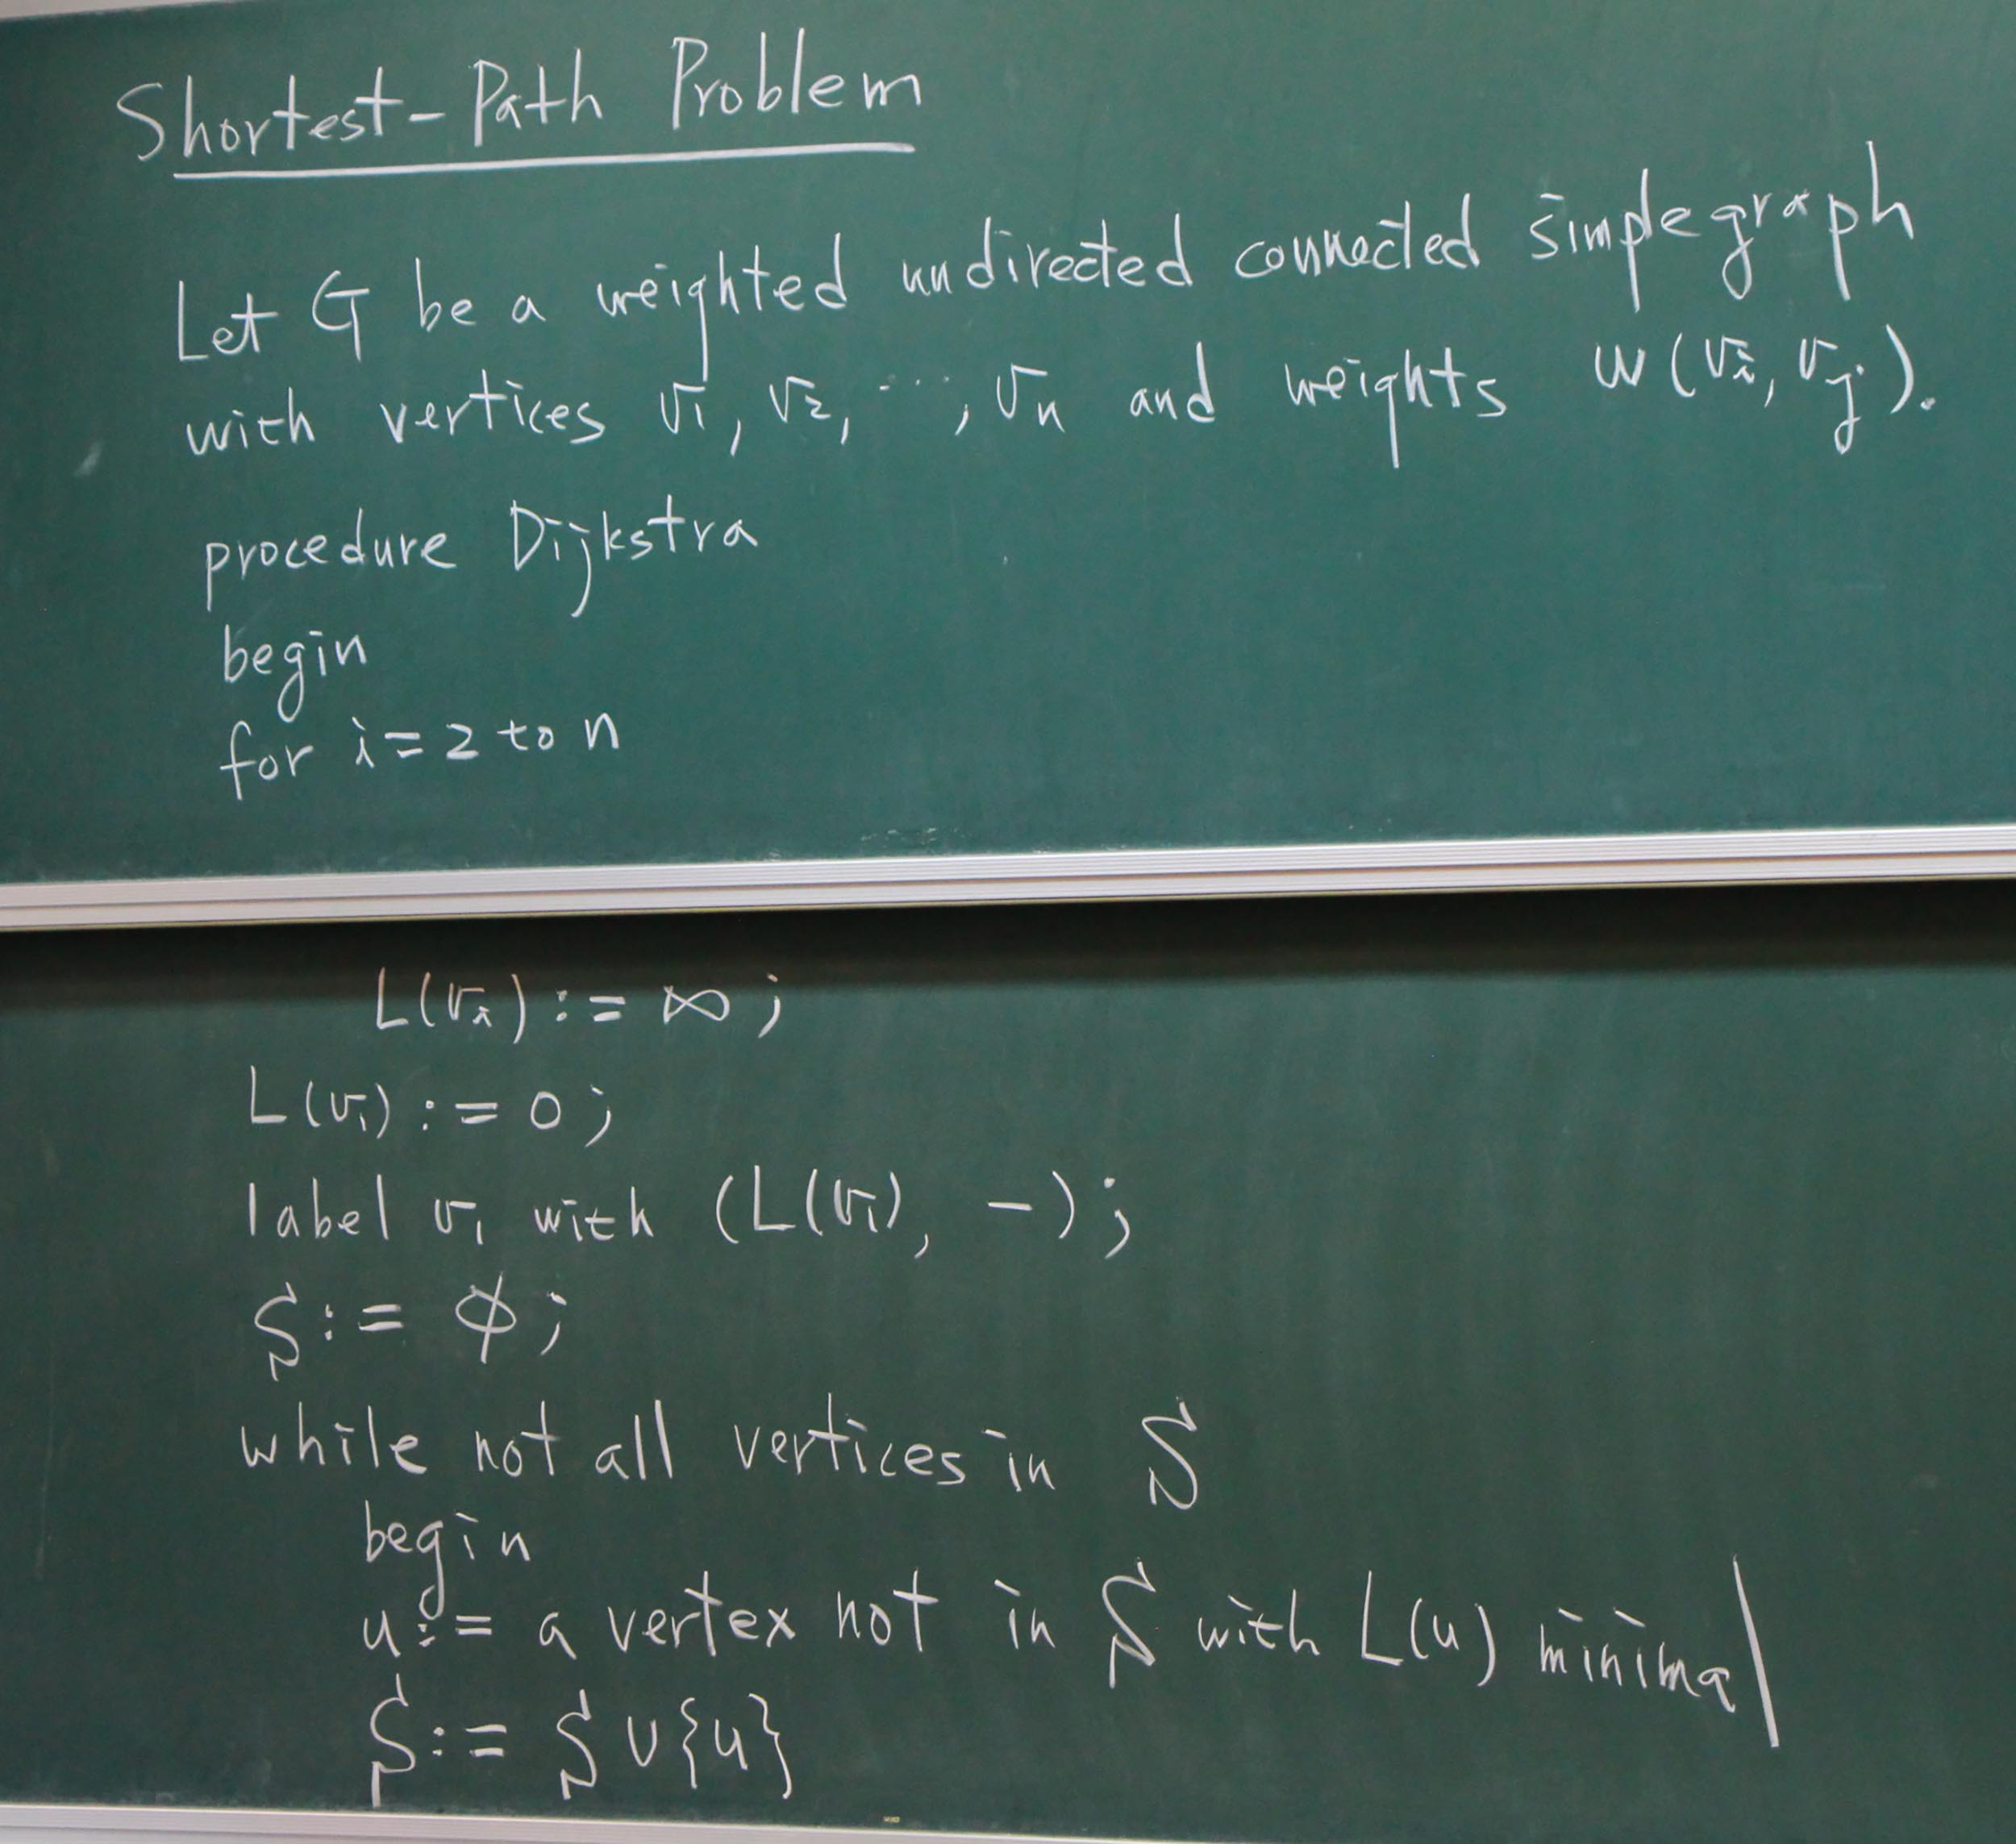 Shortest-Path Problem
Let G be a weighted undirected connected simple graph
with vertices v₁, v₂, ..., vₙ and weights w(vᵢ, vⱼ).
procedure Dijkstra
begin
for i=2 to n
L(vᵢ) := ∞;
L(v₁) := 0;
label v₁ with (L(v₁), -);
S := ϕ;
while not all vertices in S
begin
u := a vertex not in S with L(u) minimal
S := S ∪ {u}